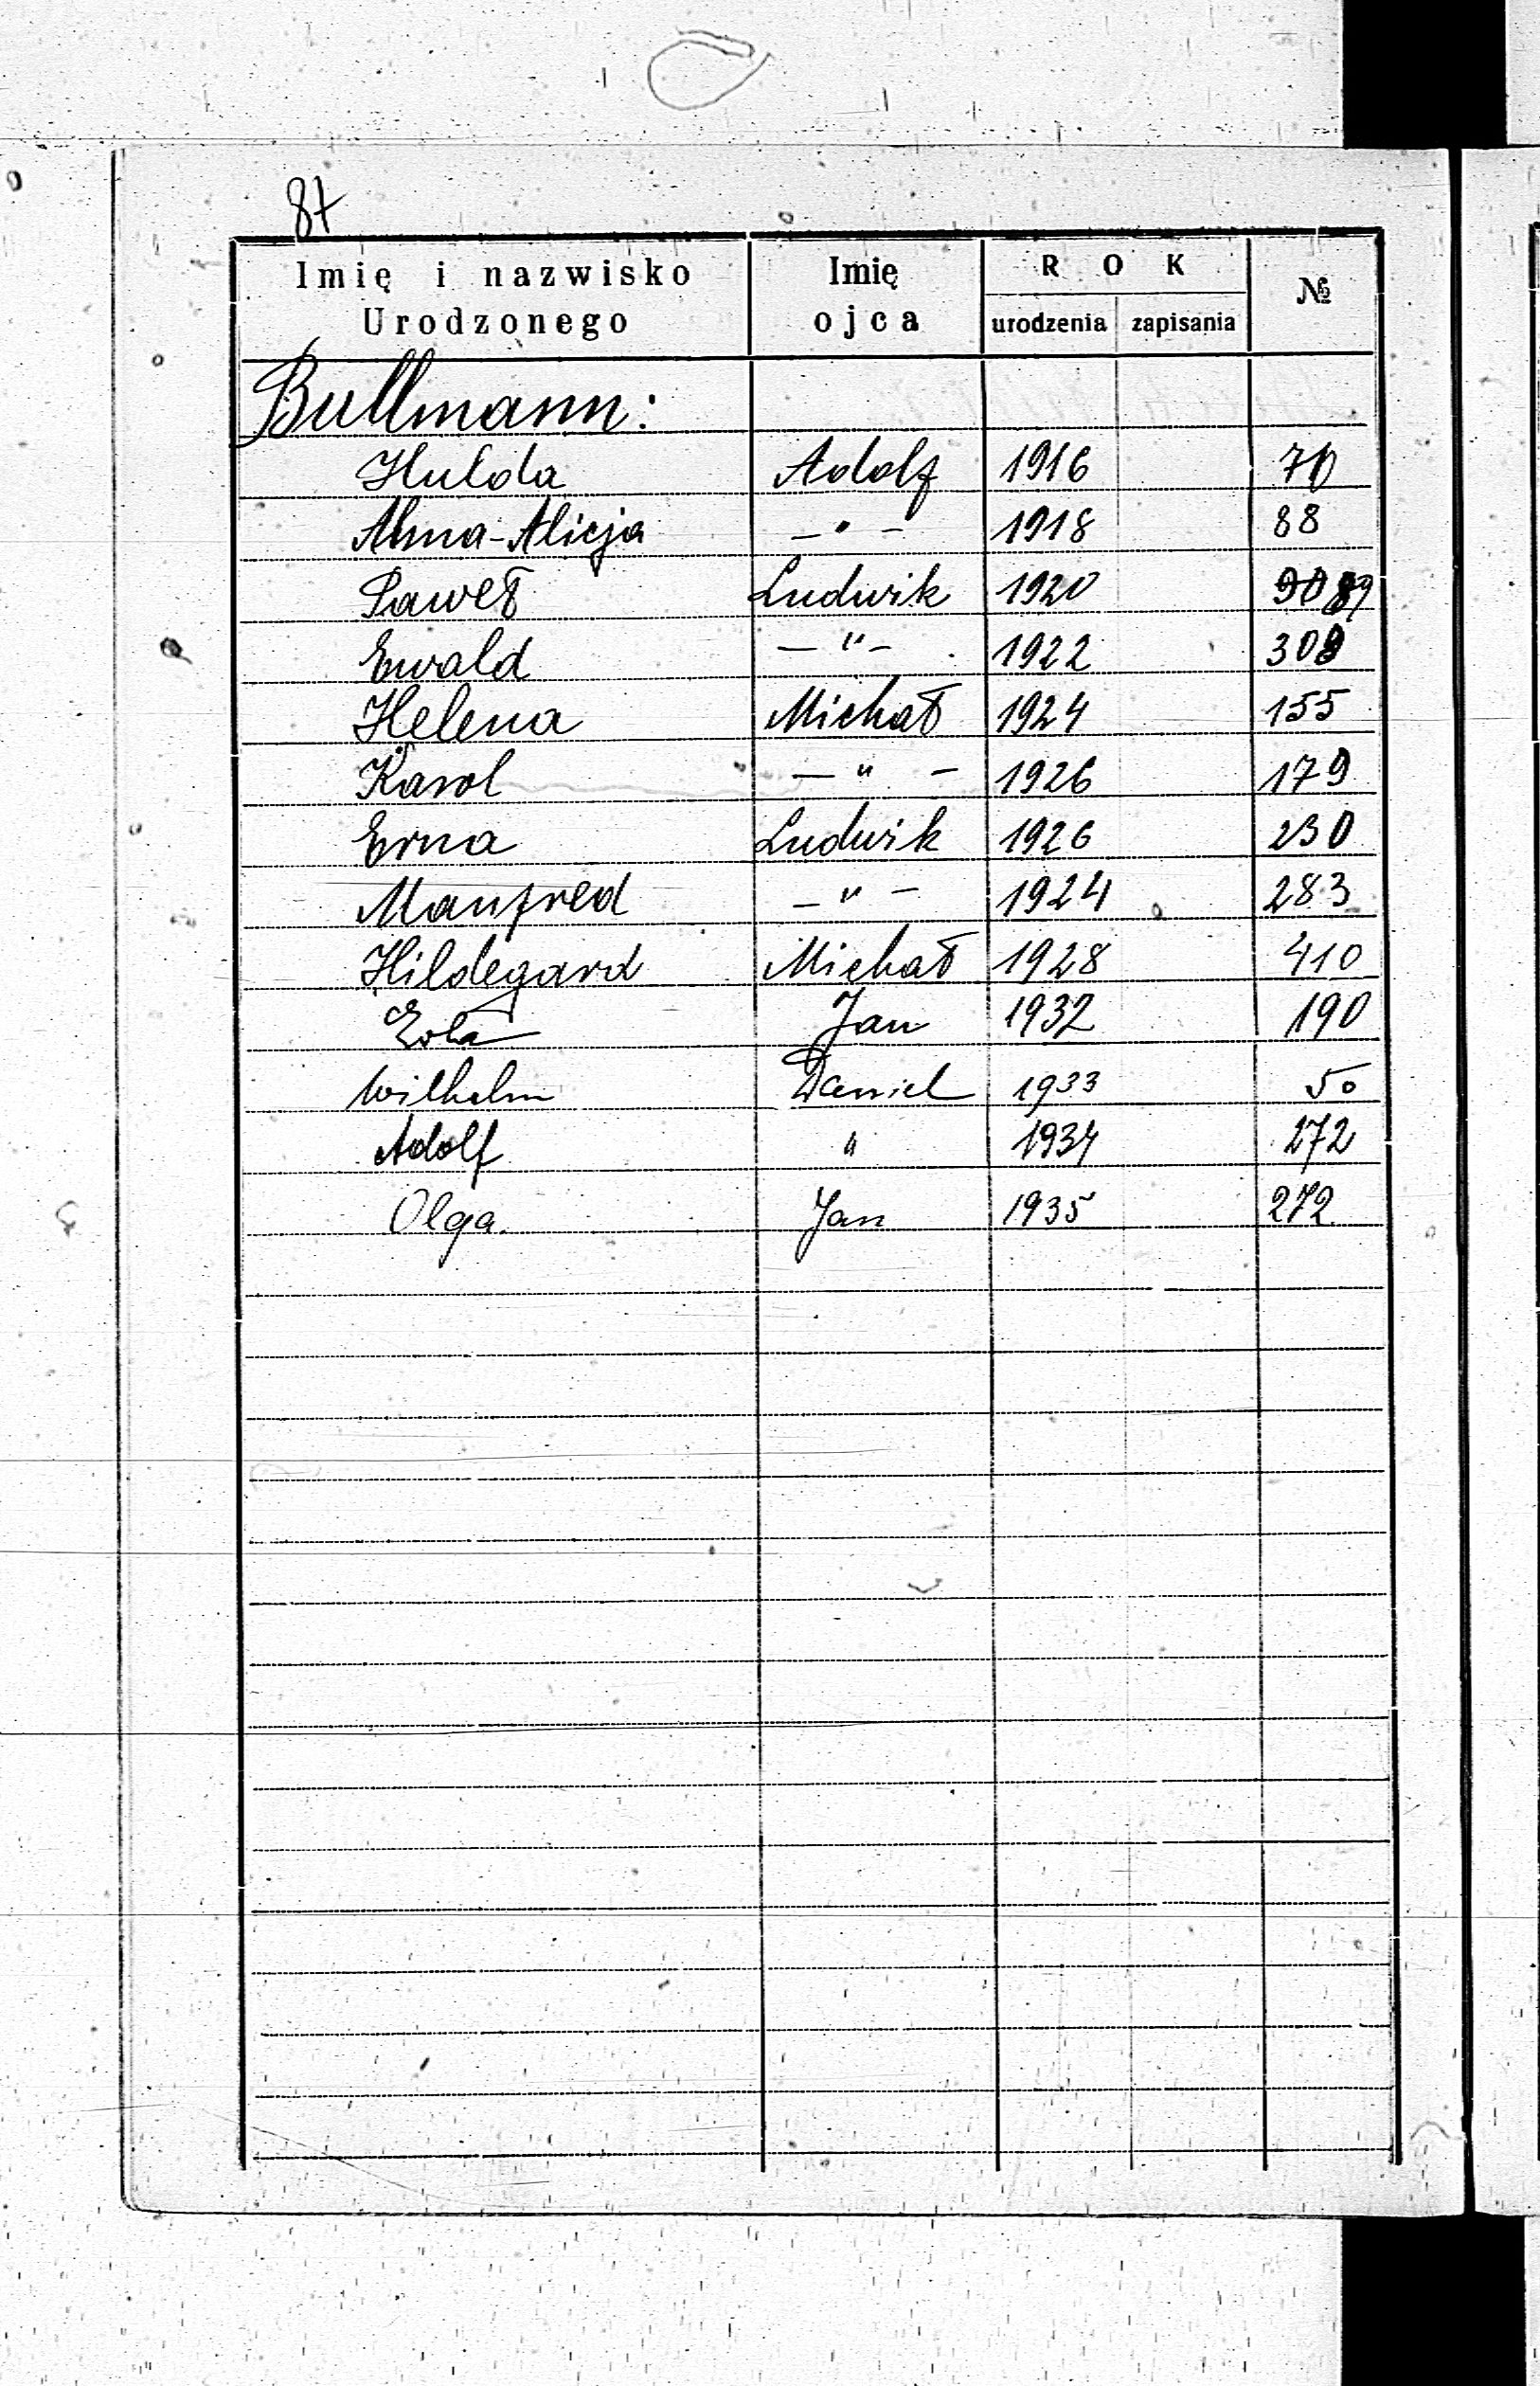 87
Imię i nazwisko Urodzonego | Imię ojca | ROK urodzenia | zapisania | №
Bullmann:
Hulda | Adolf | 1916 | 70
Alma-Alicja | — " — | 1918 | 88
Paweł | Ludwik | 1920 | 90 89
Ewald | — " — | 1922 | 308
Helena | Michał | 1924 | 155
Karol | — " — | 1926 | 179
Erna | Ludwik | 1926 | 230
Manfred | — " — | 1924 | 283
Hildegard | Michał | 1928 | 410
Jan | 1932 | 190
Wilhelm | Daniel | 1933 | 50
Adolf | " | 1934 | 272
Olga. | Jan | 1935 | 272